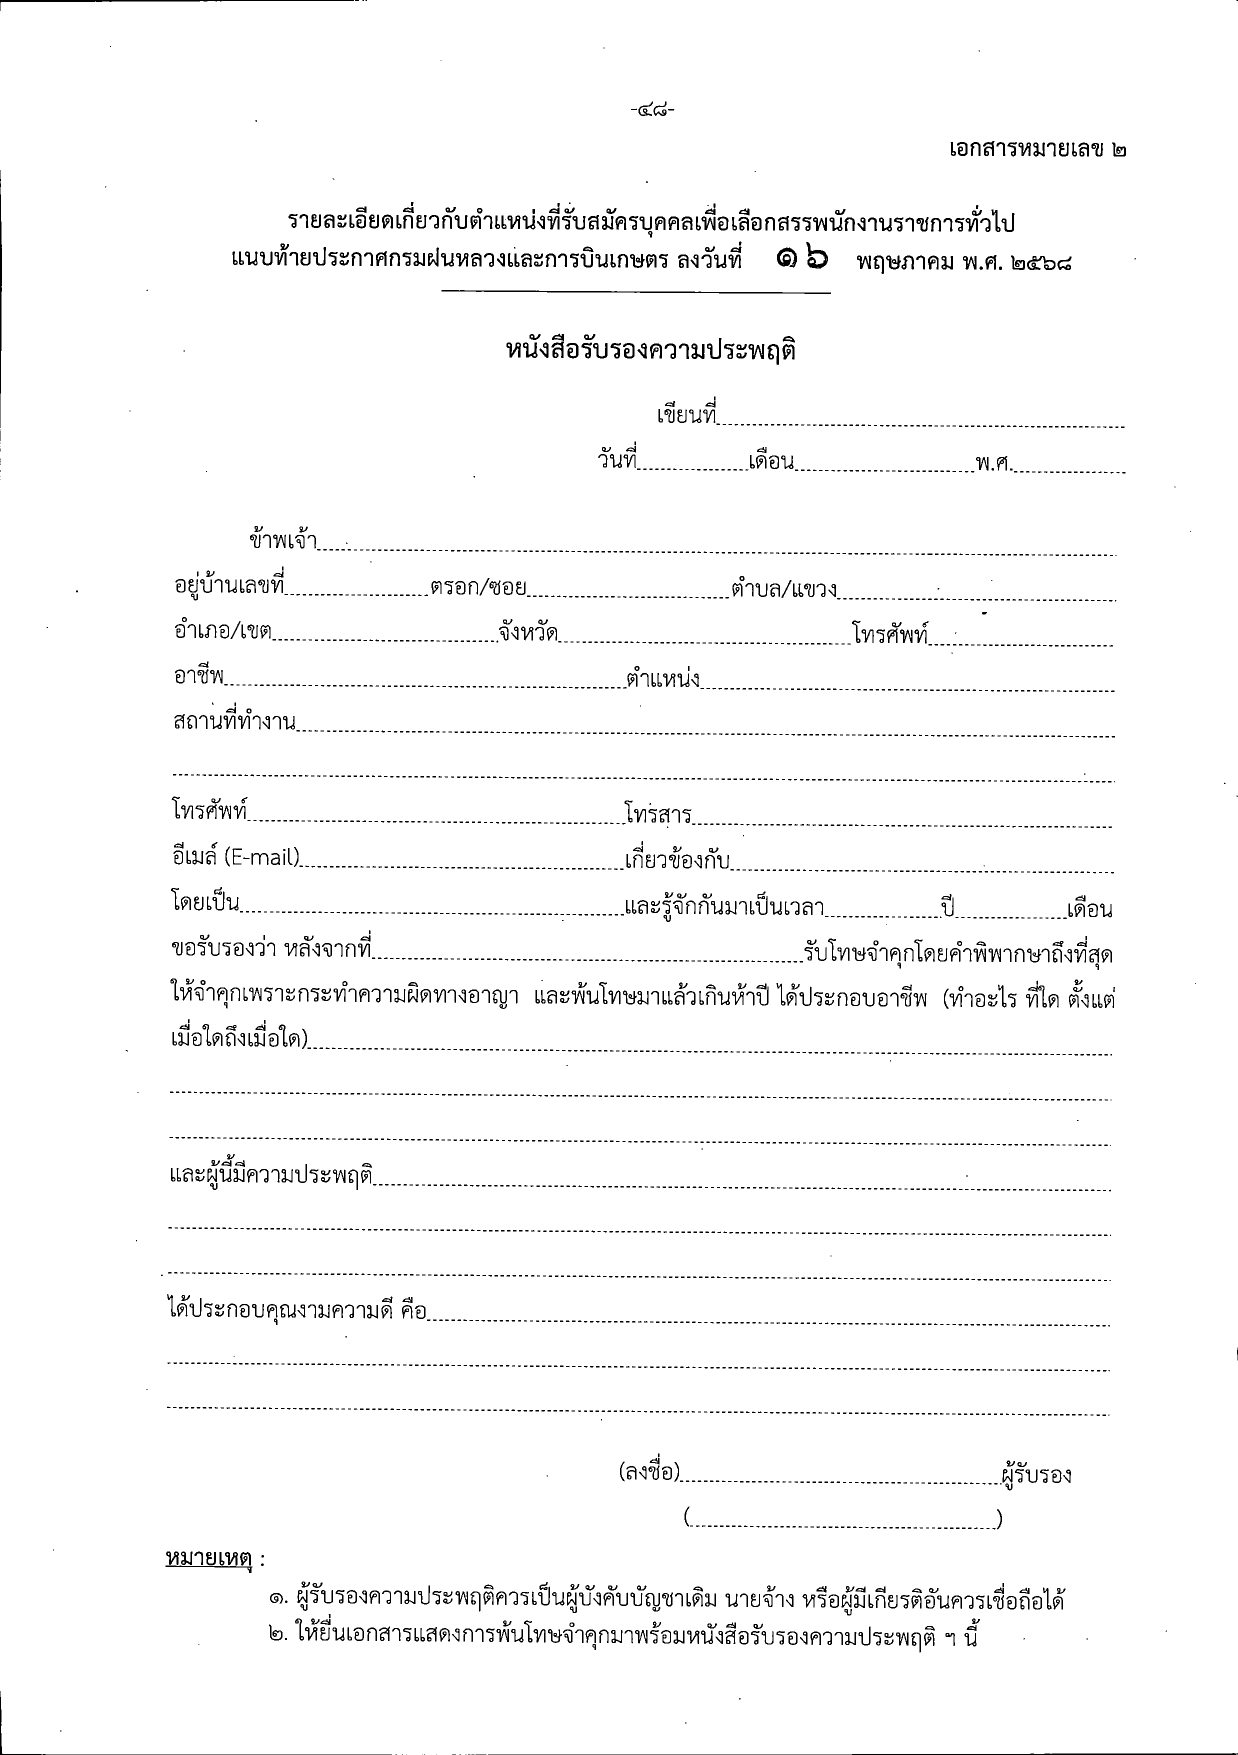 -๔๘-
เอกสารหมายเลข ๒
รายละเอียดเกี่ยวกับตำแหน่งที่รับสมัครบุคคลเพื่อเลือกสรรพนักงานราชการทั่วไป
แนบท้ายประกาศกรมฝนหลวงและการบินเกษตร ลงวันที่ ๑๖ พฤษภาคม พ.ศ. ๒๕๖๘
หนังสือรับรองความประพฤติ
เขียนที่
วันที่ เดือน พ.ศ.
ข้าพเจ้า
อยู่บ้านเลขที่ ตรอก/ซอย ตำบล/แขวง
อำเภอ/เขต จังหวัด โทรศัพท์
อาชีพ ตำแหน่ง
สถานที่ทำงาน
โทรศัพท์ โทรสาร
อีเมล์ (E-mail) เกี่ยวข้องกับ
โดยเป็น และรู้จักกันมาเป็นเวลา ปี เดือน
ขอรับรองว่า หลังจากที่ รับโทษจำคุกโดยคำพิพากษาถึงที่สุด
ให้จำคุกเพราะกระทำความผิดทางอาญา และพ้นโทษมาแล้วเกินห้าปี ได้ประกอบอาชีพ (ทำอะไร ที่ใด ตั้งแต่
เมื่อใดถึงเมื่อใด)
และผู้นี้มีความประพฤติ
ได้ประกอบคุณงามความดี คือ
(ลงชื่อ) ผู้รับรอง
( )
หมายเหตุ :
๑. ผู้รับรองความประพฤติควรเป็นผู้บังคับบัญชาเดิม นายจ้าง หรือผู้มีเกียรติอันควรเชื่อถือได้
๒. ให้ยื่นเอกสารแสดงการพ้นโทษจำคุกมาพร้อมหนังสือรับรองความประพฤติ ฯ นี้